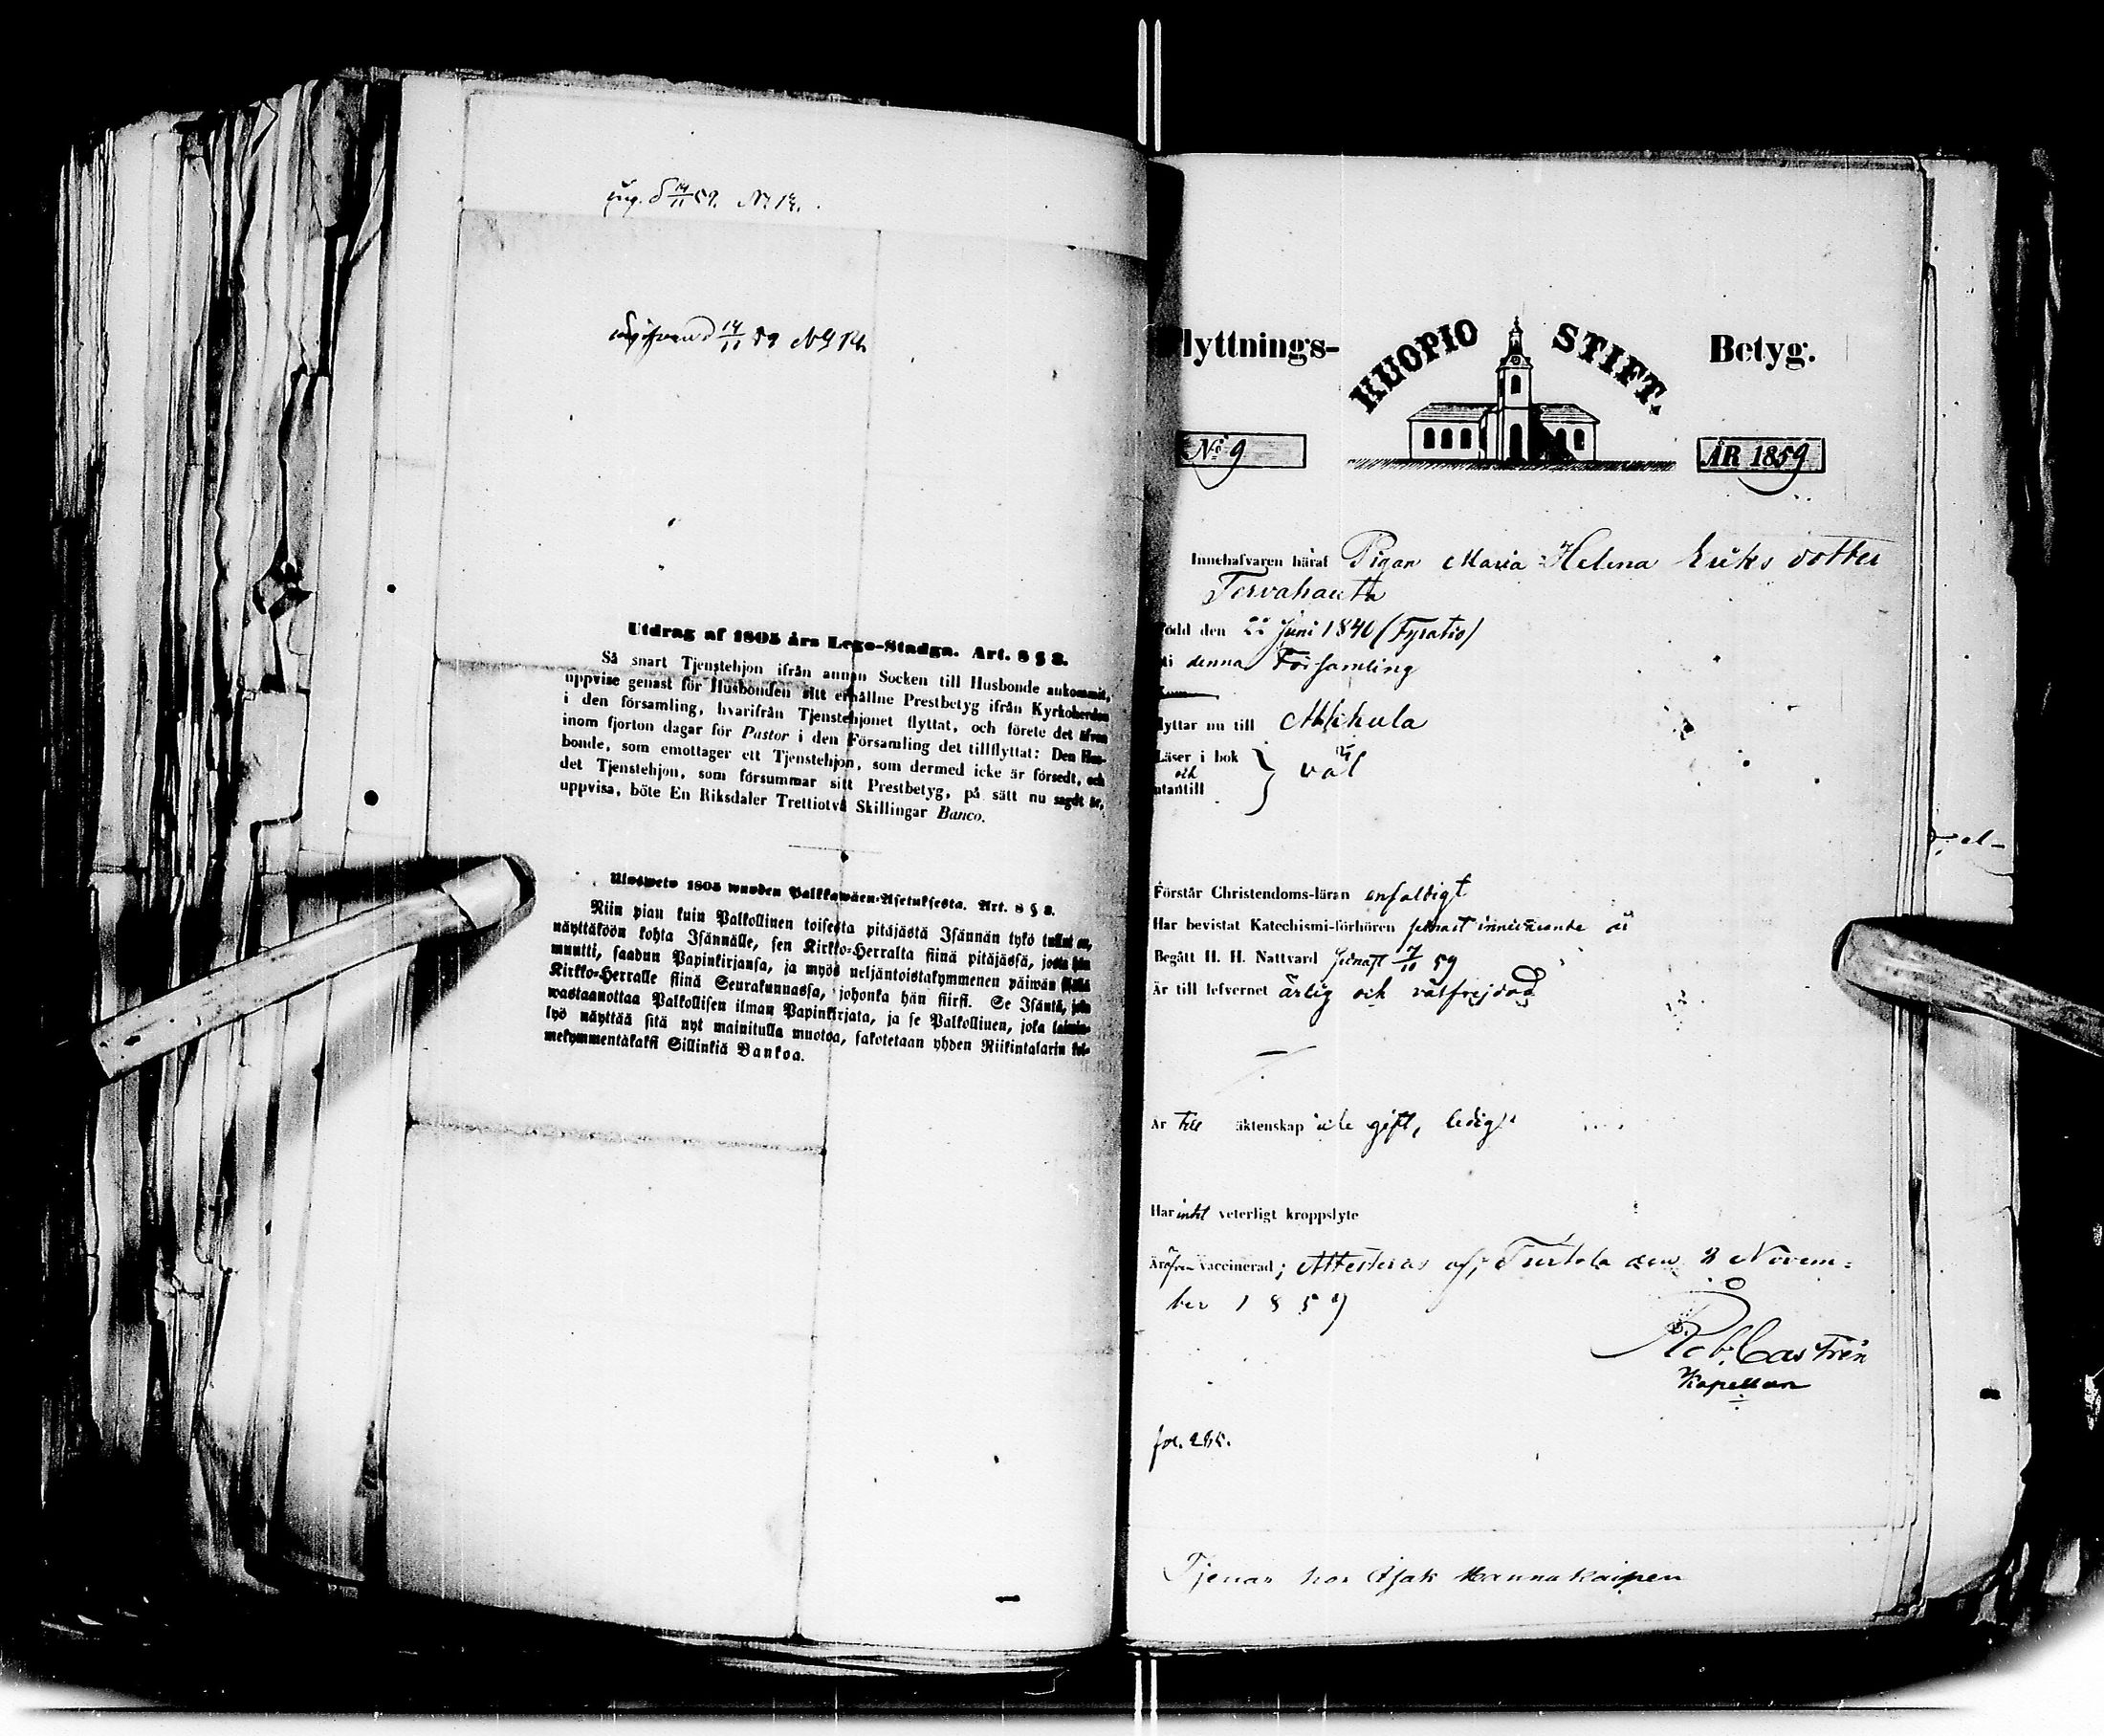 d 14/11 59. N 14.
14/11 59 N 14.
Utdrag af 1805 års Lego-Stadga. Art. 8 § 8.
Så snart Tjenstehjon ifrån annan Socken till Husbonde ankommit,
uppvise genast för Husbonden sitt erhållne Prestbetyg ifrån Kyrkoherden
i den församling, hvarifrån Tjenstehjonet flyttat, och förete det äfven
inom fjorton dagar för Pastor i den Församling det tillflyttat: Den Hus-
bonde, som emottager ett Tjenstehjon, som dermed icke är försedt, och
det Tjenstehjon, som försummar sitt Prestbetyg, på sätt nu sagdt är,
uppvisa, böte En Riksdaler Trettiotvå Skillingar Banco.
Ulosweto 1805 wuoden Palkkawäen-Asetuksesta. Art. 8 § 8.
Niin pian kuin Palkollinen toisesta pitäjästä Isännän tykö tullut on,
näyttäköön kohta Isännälle, sen Kirkko-Herralta siinä pitäjässä, josta hän
muutti, saadun Papinkirjansa, ja myös neljäntoistakymmenen päiwän sisällä
Kirkko-Herralle siinä Seurakunnassa, johonka hän siirsi. Se Isäntä, joka
wastaanottaa Palkollisen ilman Papinkirjata, ja se Palkollinen, joka laimin-
lyö näyttää sitä nyt mainitulla muotoa, sakotetaan yhden Riikintalarin kol-
mekymmentäkaksi Sillinkiä Bankoa.
lyttnings- KUOPIO STIFT. Betyg.
No 9 ÅR 1859
Innehafvaren häraf Pigan Maria Helena Eriks dotter
Tervahauta
ödd den 22 Juni 1840 (Fyratio)
i denna Församling
lyttar nu till Alkkula
Läser i bok
och väl
utantill
Förstår Christendoms-läran enfaldigt
Har bevistat Katechismi-förhören senast innevarande år
Begått H. H. Nattvard senast 7/11 59
Är till lefvernet ärlig och välfrejdad
Är till äktenskap icke gift, ledig
Har intet veterligt kroppslyte
Är äfven vaccinerad; Attesteras af; Turtola den 8 Novem-
ber 1859
Rob. Castrén
Kapellan
fol. 285.
Tjenar hos Isak Hannukainen